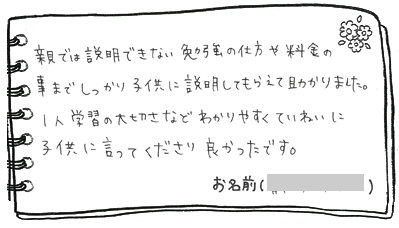 親では説明できない勉強の仕方や料金の
事までしっかり子供に説明してもらえて助かりました。
1人学習の大切さなどわかりやすくていねいに
子供に言ってくださり良かったです。
お名前( )